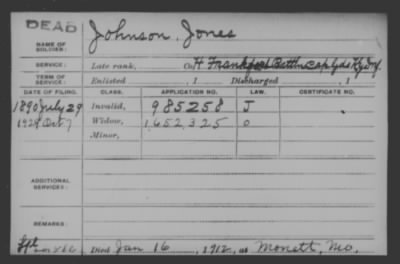 DEAD
NAME OF SOLDIER: Johnson, Jones
SERVICE: Late rank, Co. H Frankfort Battln Capl Gds Ky Inf.
TERM OF SERVICE: Enlisted , 1 Discharged , 1
DATE OF FILING. CLASS. APPLICATION NO. LAW. CERTIFICATE NO.
1890 July 29 Invalid, 985258 J
1929 Oct 7 Widow, 1652325 O
Minor,
ADDITIONAL SERVICES:
REMARKS:
Died Jan 16, 1912, at Monett, Mo.